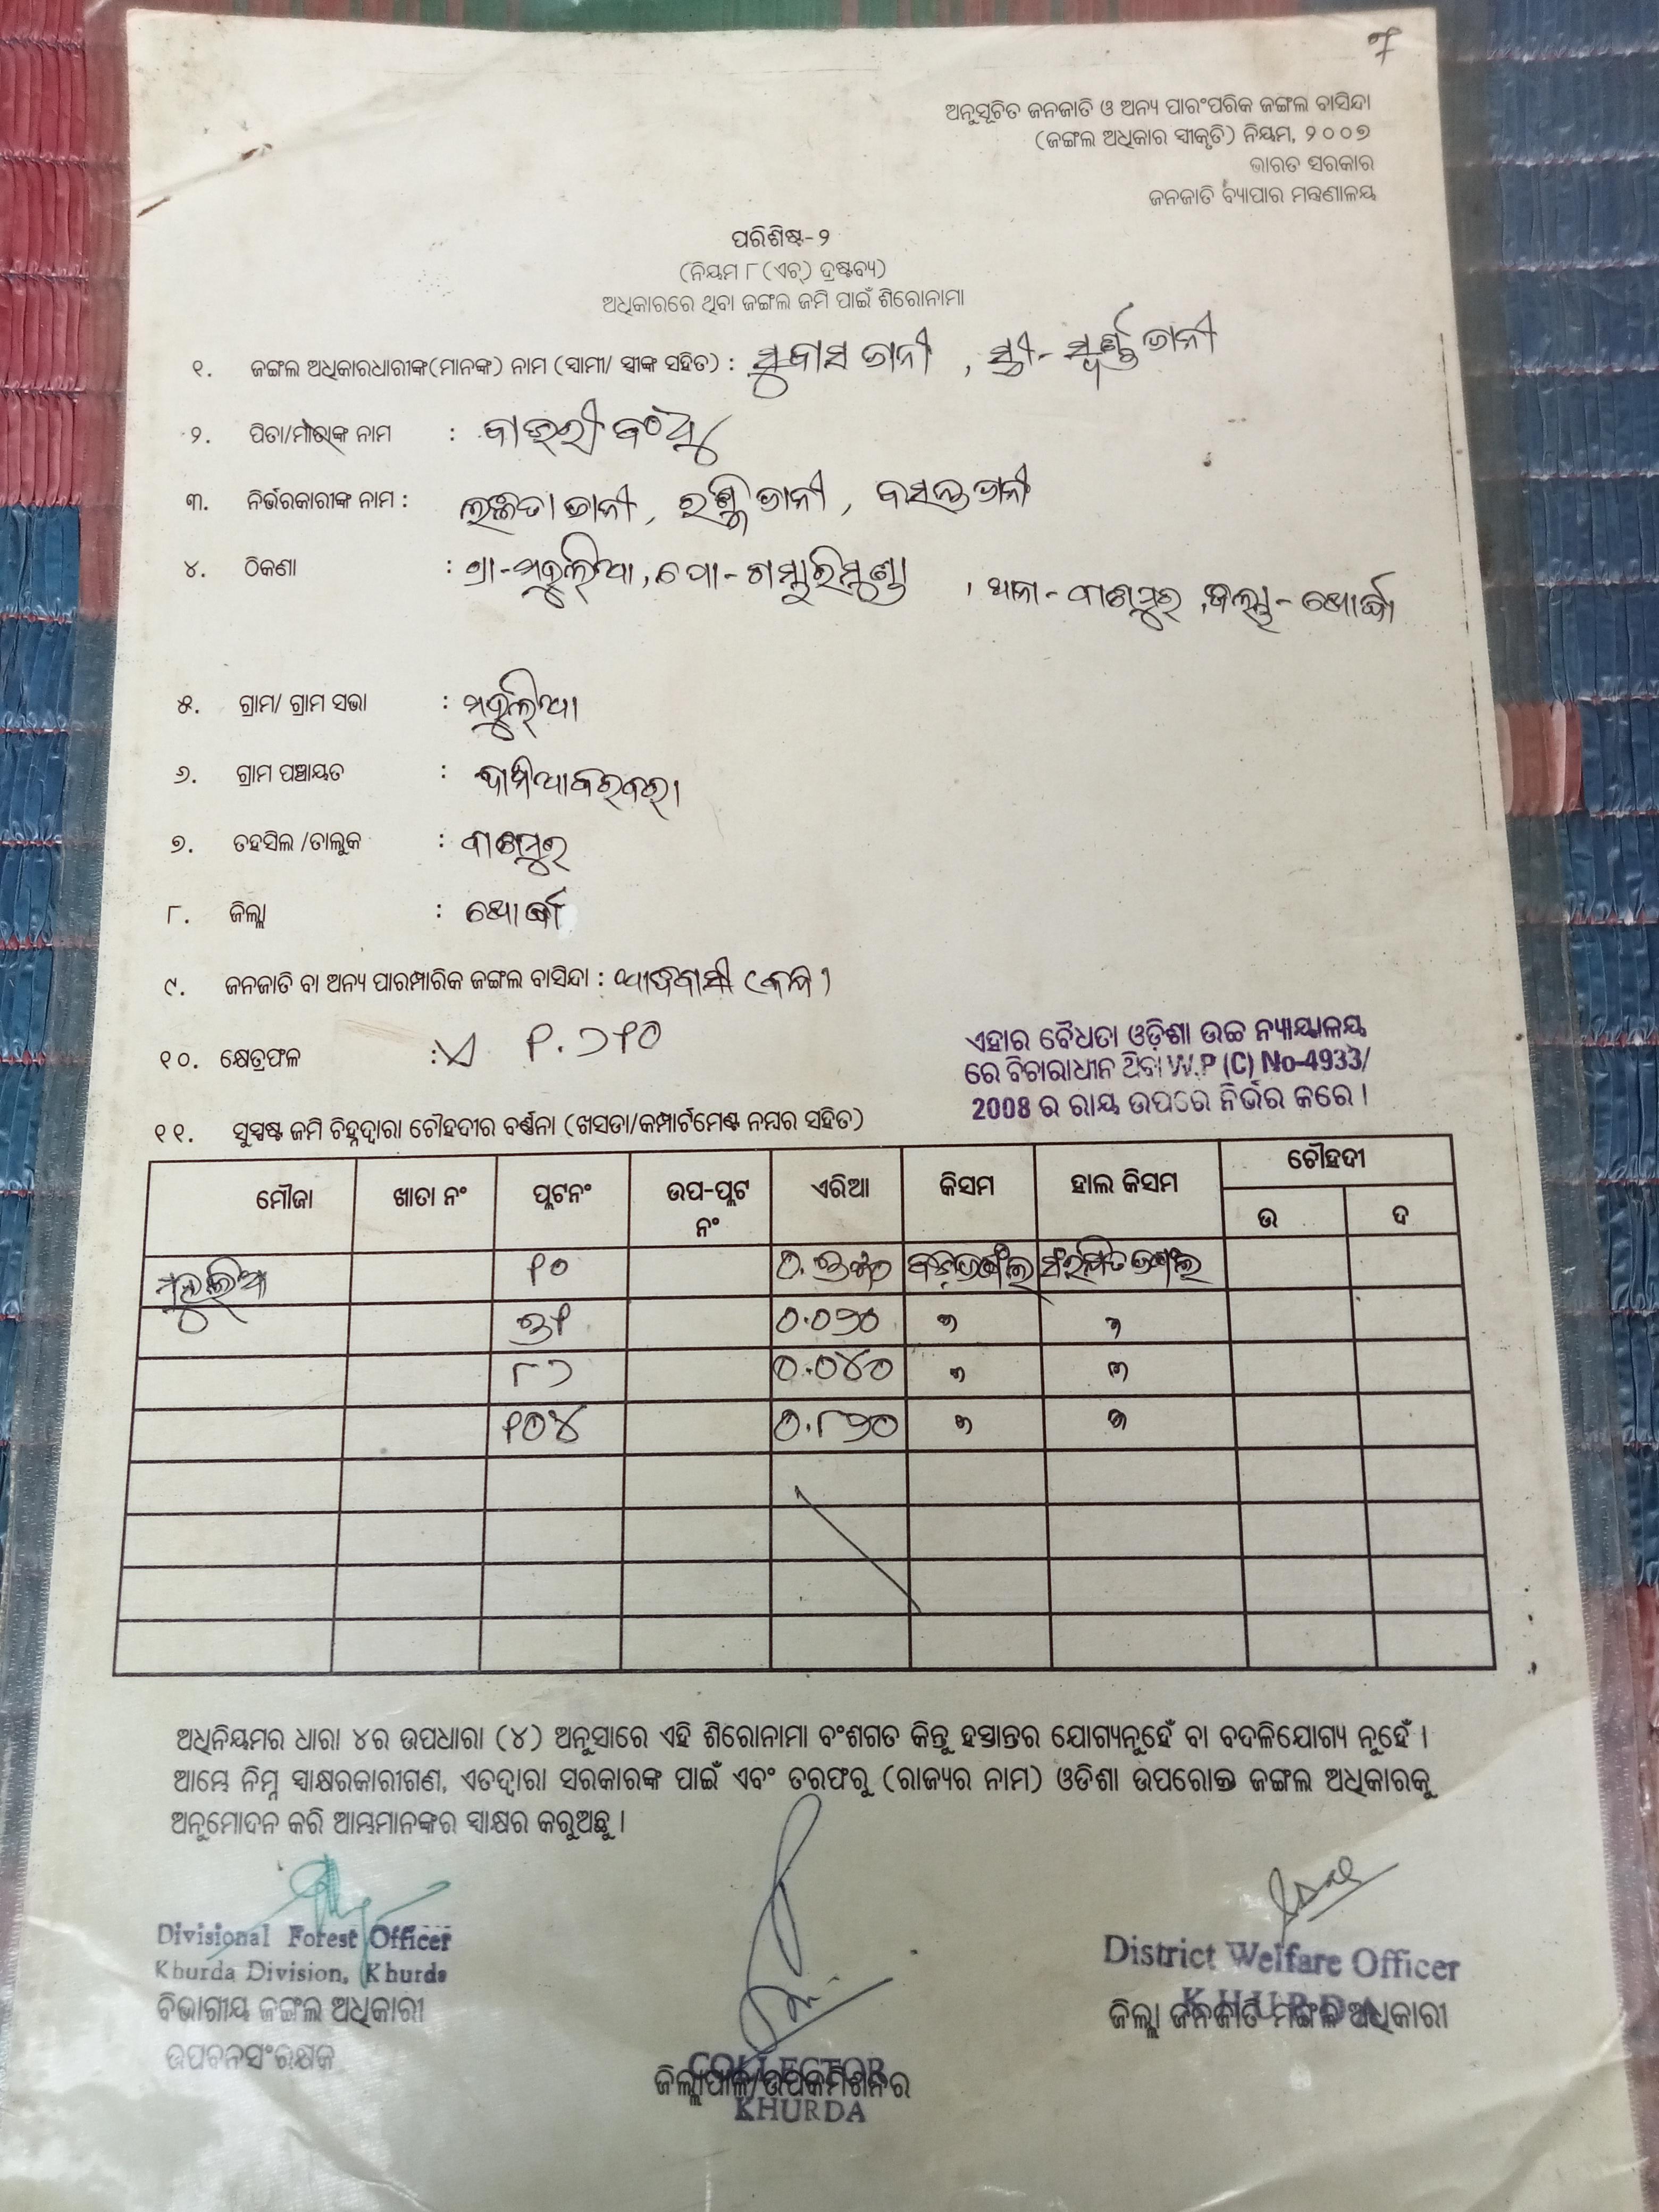 ଅନୁସୂଚିତ ଜନଜାତି ଓ ଅନ୍ୟ ପାରଂପରିକ ଜଙ୍ଗଲ ବାସିନ୍ଦା
(ଜଙ୍ଗଲ ଅଧିକାର ସ୍ୱୀକୃତି) ନିୟମ, ୨୦୦୭
ଭାରତ ସରକାର
ଜନଜାତି ବ୍ୟାପାର ମନ୍ତ୍ରଣାଳୟ
ପରିଶିଷ୍ଟ-୨
(ନିୟମ ୮ (ଏଚ୍) ଦ୍ରଷ୍ଟବ୍ୟ)
ଅଧିକାରରେ ଥିବା ଜଙ୍ଗଲ ଜମି ପାଇଁ ଶିରୋନାମା
୧. ଜଙ୍ଗଲ ଅଧିକାରଧାରୀଙ୍କ(ମାନଙ୍କ) ନାମ (ସ୍ୱାମୀ/ ସ୍ତ୍ରୀଙ୍କ ସହିତ) : ସୁବାସ ଜାନୀ , ସ୍ତ୍ରୀ- ସ୍ୱର୍ଣ୍ଣ ଜାନୀ
୨. ପିତା/ମାତାଙ୍କ ନାମ :
୩. ନିର୍ଭରକାରୀଙ୍କ ନାମ : ଜାନୀ, ଜାନୀ, ବସନ୍ତ ଜାନୀ
୪. ଠିକଣା : ଗ୍ରା- , ପୋ- , ଥାନା - ବାଣପୁର , ଜିଲ୍ଲା - ଖୋର୍ଦ୍ଧା
୫. ଗ୍ରାମ/ ଗ୍ରାମ ସଭା :
୬. ଗ୍ରାମ ପଞ୍ଚାୟତ :
୭. ତହସିଲ /ତାଲୁକ : ବାଣପୁର
୮. ଜିଲ୍ଲା : ଖୋର୍ଦ୍ଧା
୯. ଜନଜାତି ବା ଅନ୍ୟ ପାରମ୍ପାରିକ ଜଙ୍ଗଲ ବାସିନ୍ଦା : ଆଦିବାସୀ (କନ୍ଧ)
୧୦. କ୍ଷେତ୍ରଫଳ : ଏ ୧.୨୧୦
ଏହାର ବୈଧତା ଓଡ଼ିଶା ଉଚ୍ଚ ନ୍ୟାୟାଳୟ
ରେ ବିଚାରାଧୀନ ଥିବା W.P (C) No-4933/
2008 ର ରାୟ ଉପରେ ନିର୍ଭର କରେ ।
୧୧. ସୁସ୍ପଷ୍ଟ ଜମି ଚିହ୍ନଦ୍ୱାରା ଚୌହଦୀର ବର୍ଣ୍ଣନା (ଖସଡା/କମ୍ପାର୍ଟମେଣ୍ଟ ନମ୍ବର ସହିତ)
ମୌଜା ଖାତା ନଂ ପ୍ଲଟନଂ ଉପ-ପ୍ଲଟ ନଂ ଏରିଆ କିସମ ହାଲ କିସମ ଚୌହଦୀ
ଉ ଦ
୧୦ ଜଙ୍ଗଲ
୩୧ ୦.୦୬୦ ୬ ୬
୮୨ ୦.୦୪୦ ୬ ୬
୧୦୪ ୦.୮୬୦ ୬ ୬
ଅଧିନିୟମର ଧାରା ୪ର ଉପଧାରା (୪) ଅନୁସାରେ ଏହି ଶିରୋନାମା ବଂଶଗତ କିନ୍ତୁ ହସ୍ତାନ୍ତର ଯୋଗ୍ୟନୁହେଁ ବା ବଦଳିଯୋଗ୍ୟ ନୁହେଁ ।
ଆମ୍ଭେ ନିମ୍ନ ସ୍ୱାକ୍ଷରକାରୀଗଣ, ଏତଦ୍ୱାରା ସରକାରଙ୍କ ପାଇଁ ଏବଂ ତରଫରୁ (ରାଜ୍ୟର ନାମ) ଓଡିଶା ଉପରୋକ୍ତ ଜଙ୍ଗଲ ଅଧିକାରକୁ
ଅନୁମୋଦନ କରି ଆମ୍ଭମାନଙ୍କର ସ୍ୱାକ୍ଷର କରୁଅଛୁ ।
Divisional Forest Officer
Khurda Division, Khurda
ବିଭାଗୀୟ ଜଙ୍ଗଲ ଅଧିକାରୀ
ଉପବନସଂରକ୍ଷକ
COLLECTOR
ଜିଲ୍ଲାପାଳ/ଉପକମିଶନର
KHURDA
District Welfare Officer
KHURDA
ଜିଲ୍ଲା ଜନଜାତି ମଙ୍ଗଳ ଅଧିକାରୀ